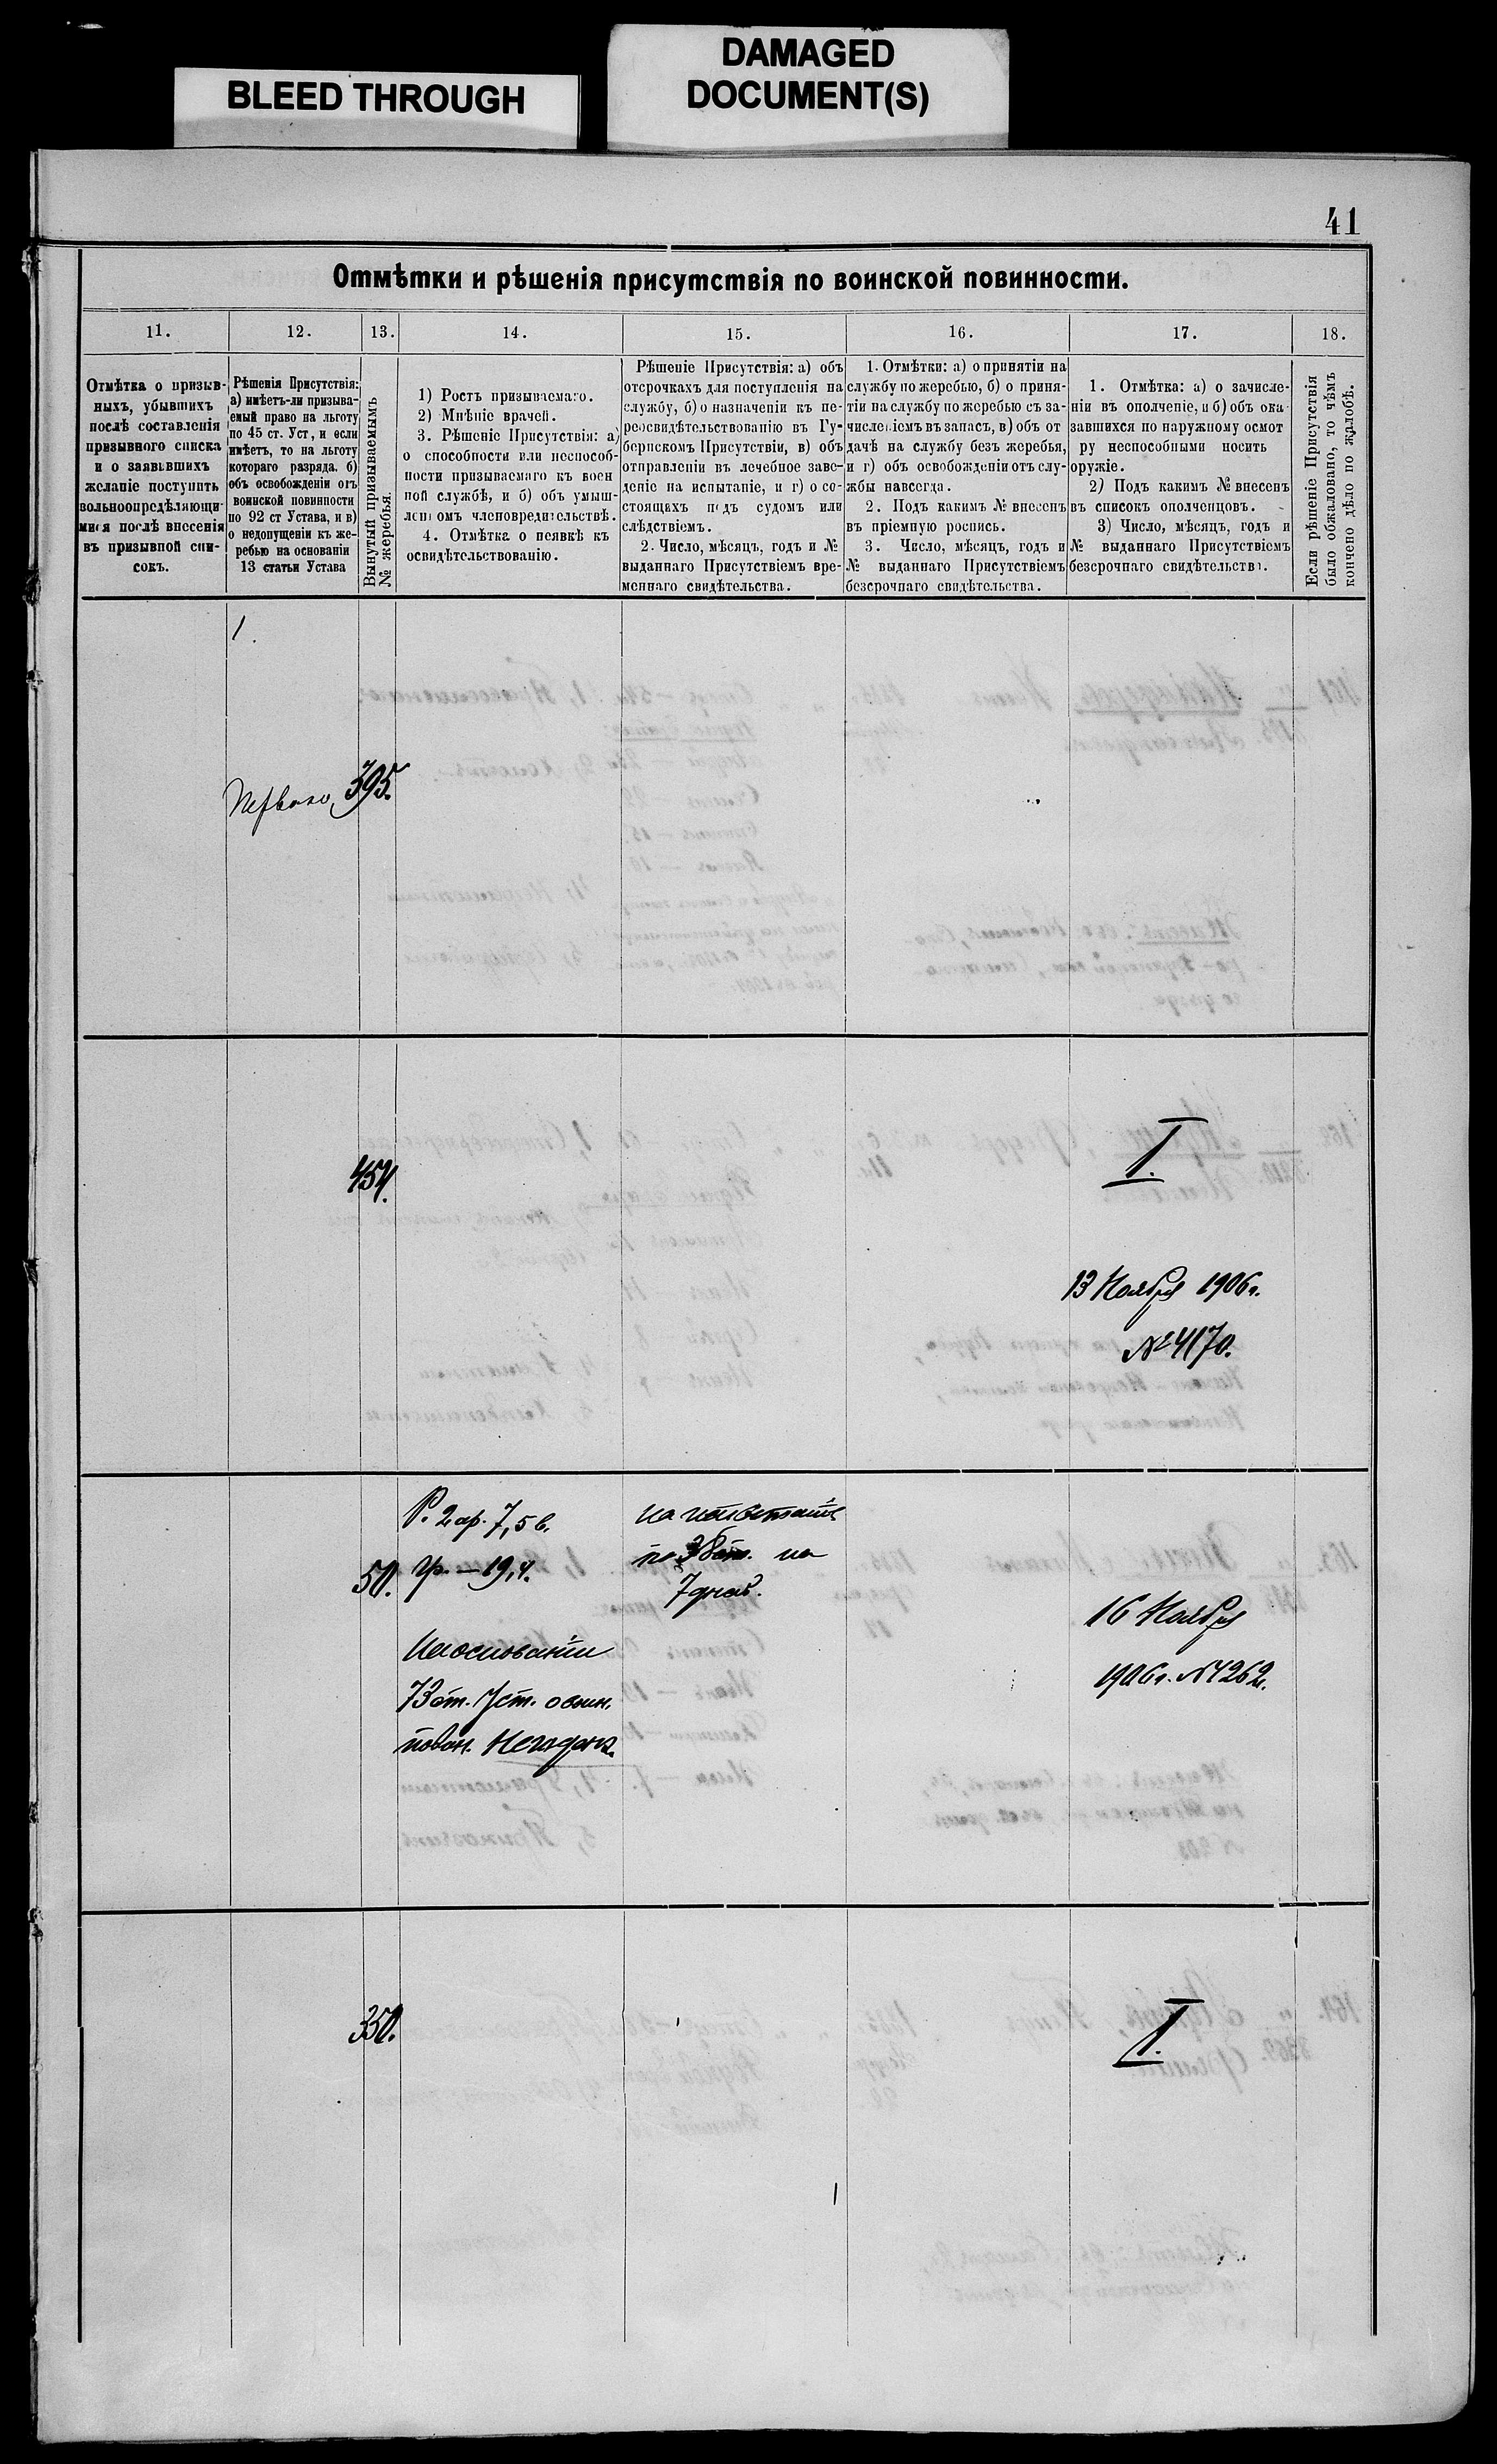 BLEED THROUGH
DAMAGED
DOCUMENT(S)
41
Отмѣтки и рѣшенія присутствія по воинской повинности.
11.
12.
13.
14.
15.
16.
17.
18.
Отмѣтка о призыв-
ныхъ, убывшихъ
послѣ составленія
призывного списка
и о заявившихъ
желаніе поступить
вольноопредѣляющи-
мися послѣ внесенія
въ призывной спи-
сокъ.
Рѣшенія Присутствія:
а) имѣетъ-ли призыва-
емый право на льготу
по 45 ст. Уст, и если
имѣетъ, то на льготу
котораго разряда. б)
объ освобожденіи отъ
воинской повинности
по 92 ст Устава, и в)
о недопущеніи къ же-
ребью на основаніи
13 статьи Устава
Вынутый призываемымъ
№ жеребья.
1) Ростъ призываемаго.
2) Мнѣніе врачей.
3. Рѣшеніе Присутствія: а)
о способности или неспособ-
ности призываемаго къ воен
ной службѣ, и б) объ умыш-
ленномъ членовредительствѣ.
4. Отмѣтка о неявкѣ къ
освидѣтельствованію.
Рѣшеніе Присутствія: а) объ
отсрочкахъ для поступленія на
службу, б) о назначеніи къ пе-
реосвидѣтельствованію въ Гу-
бернскомъ Присутствіи, в) объ
отправленіи въ лечебное заве-
деніе на испытаніе, и г) о со-
стоящихъ подъ судомъ или
слѣдствіемъ.
2. Число, мѣсяцъ, годъ и №
выданнаго Присутствіемъ вре-
меннаго свидѣтельства.
1. Отмѣтки: а) о принятіи на
службу по жеребью, б) о приня-
тіи на службу по жеребью съ за-
численіемъ въ запасъ, в) объ от
дачѣ на службу безъ жеребья,
и г) объ освобожденіи отъ слу-
жбы навсегда.
2. Подъ какимъ № внесенъ
въ пріемную роспись.
3. Число, мѣсяцъ, годъ и
№ выданнаго Присутствіемъ
безсрочнаго свидѣтельства.
1. Отмѣтка: а) о зачисле-
ніи въ ополченіе, и б) объ ока
завшихся по наружному осмот
ру неспособными носить
оружіе.
2) Подъ какимъ № внесенъ
въ списокъ ополченцовъ.
3) Число, мѣсяцъ, годъ и
№ выданнаго Присутствіемъ
безсрочнаго свидѣтельства.
Если рѣшеніе Присутствія
было обжаловано, то чѣмъ
кончено дѣло по жалобѣ.
1.
Первого
395.
454.
I.
13 Ноября 1906 г.
№ 4170.
50.
Р. 2 ар. 7,5 в.
Гр. — 19,4.
На основаніи
73 ст. Уст. о воин.
повин. Негоденъ.
на испытаніе
по 36 ст. на
7 дней.
16 Ноября
1906 г. № 4262.
350.
I.